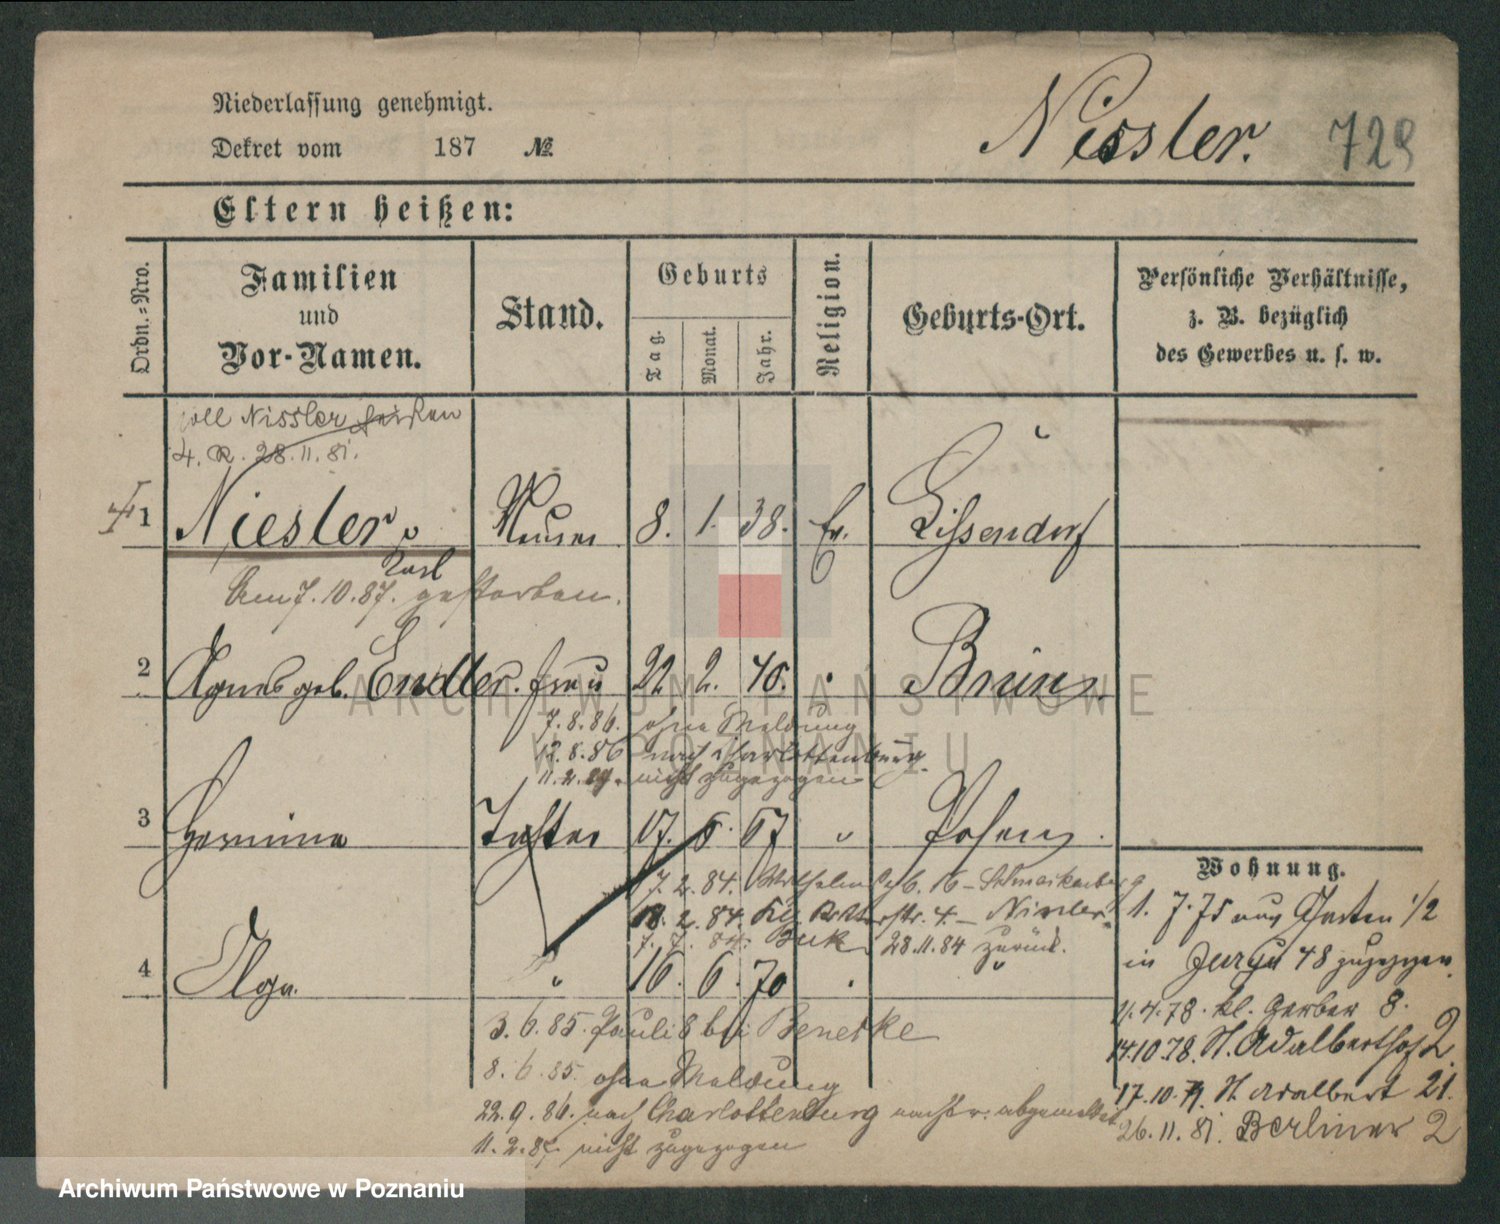 Niederlassung genehmigt.
Dekret vom 187 №
Nissler. 729
Eltern heißen:
Ordn.-Nro.
Familien und Vor-Namen.
Stand.
Geburts
Tag.
Monat.
Jahr.
Religion.
Geburts-Ort.
Persönliche Verhältnisse,
z. B. bezüglich
des Gewerbes u. s. w.
soll Nissler heißen
4. R. 28.11.81.
1 Niesler, 8. 1. 38. Ev.
Karl
Am 7.10.87. gestorben.
2 Agnes geb. Endler. Frau 22. 2. 40.
7.8.86. ohne Meldung
12.8.86 nach Charlottenburg.
nicht zugezogen
3 Hermine Tochter 17. 6. 67 " Posen.
7.2.84.
18.2.84. Kl. Ritterstr. 4. –
28.11.84 zurück.
4 Olga. " 16. 6. 70 "
3.6.85. Pauli 8 bei Beneske
8.6.85. ohne Meldung
22.9.86. nach Charlottenburg nachtr. abgemeldet
11.2.87. nicht zugezogen
Wohnung.
1. 7. 75 aus Garten 1/2
in 48 zugezogen.
1.4.78. kl. Gerber 8.
14.10.78. St. Adalbertstr 2.
17.10.79. St Adalbert 21.
26.11.81. Berliner 2
ARCHIWUM PAŃSTWOWE
W POZNANIU
Archiwum Państwowe w Poznaniu